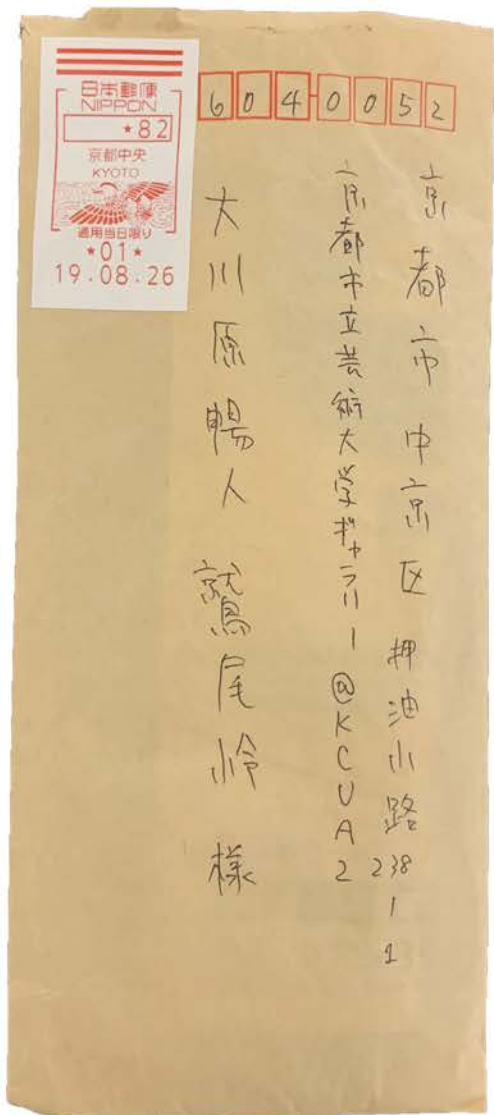 日本郵便
NIPPON
*82
京都中央
KYOTO
通用当日限り
*01*
19.08.26
6040052
京都市中京区押油小路238ー1
京都市立芸術大学ギャラリー@KCUA2
大川原暢人 鷲尾怜 様